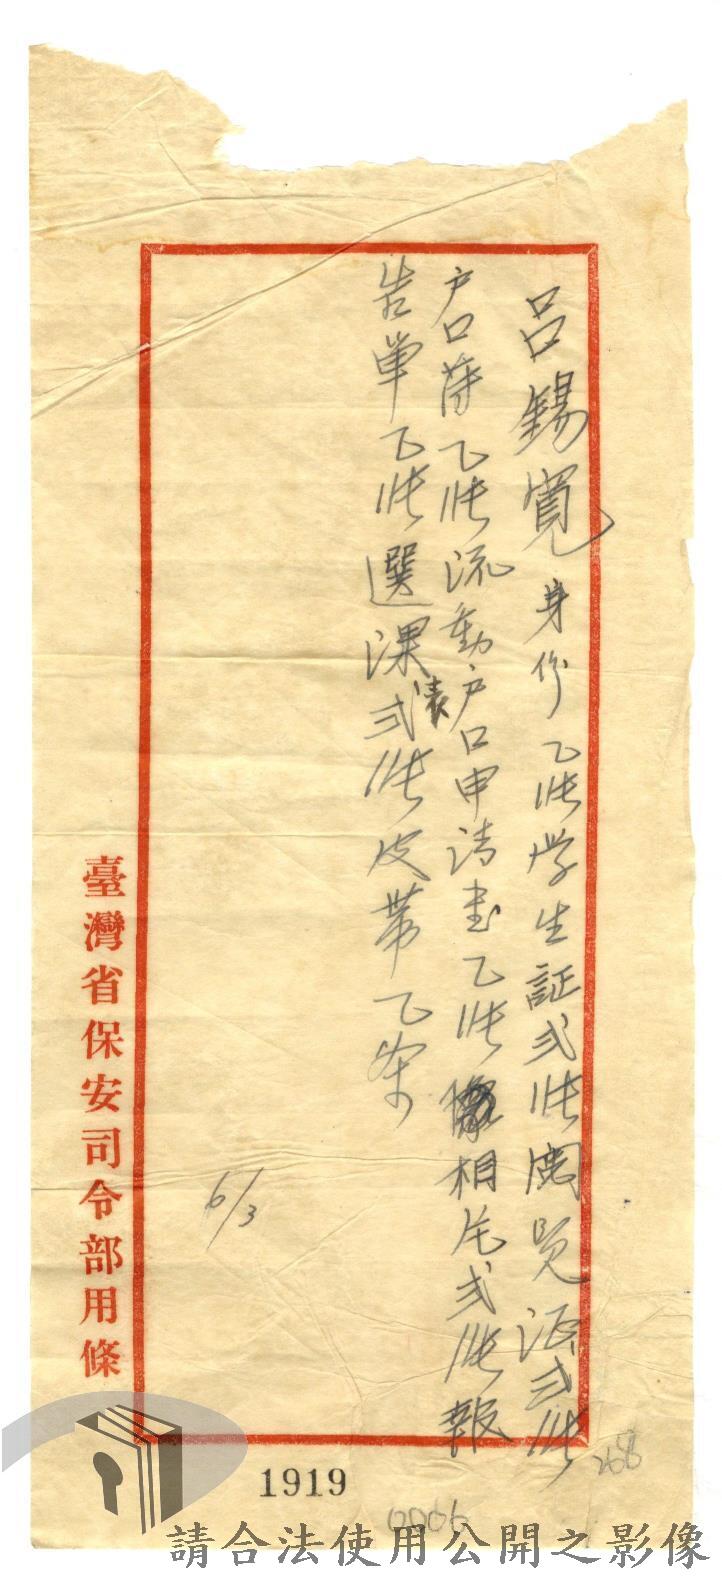 呂錫寬 身份乙張学生証弍張閱覽証弍張
戶口簿乙張流動戶口申請書乙張相片弍張報
告單乙張選課表弍張皮帶乙条
6/3
臺灣省保安司令部用條
1919
0006
268
請合法使用公開之影像